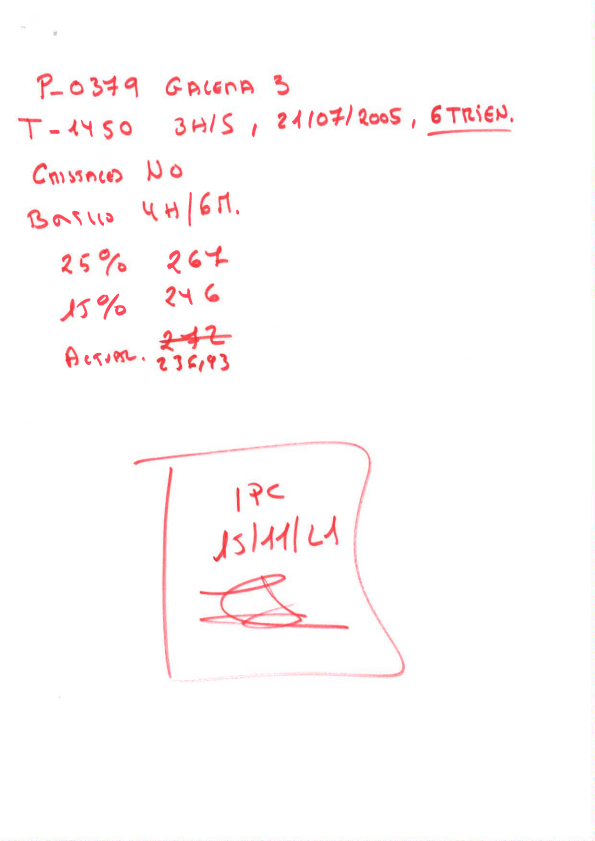 P-0379 GALENA 3
T-1450 3H/S, 21/07/2005, 6 TRIEN.
NO
4H/6M.
25% 267
15% 246
ACTUAL. 212
236,93
IPC
15/11/21